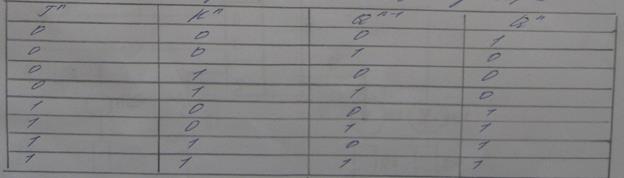 Jⁿ Kⁿ Qⁿ⁻¹ Qⁿ
0 0 0 1
0 0 1 0
0 1 0 0
0 1 1 0
1 0 0 1
1 0 1 1
1 1 0 1
1 1 1 1